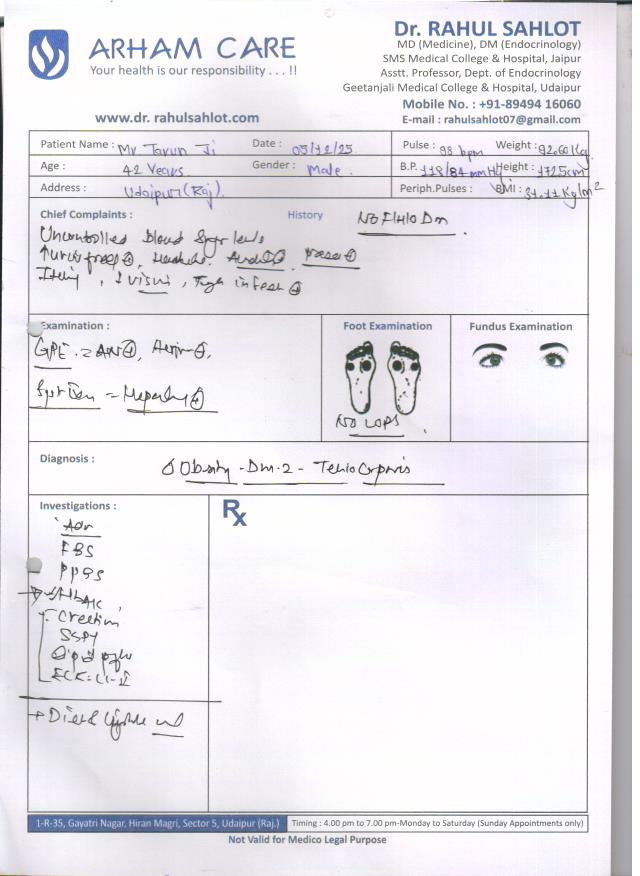 ARHAM CARE
Your health is our responsibility . . . !!
www.dr. rahulsahlot.com
Dr. RAHUL SAHLOT
MD (Medicine), DM (Endocrinology)
SMS Medical College & Hospital, Jaipur
Asstt. Professor, Dept. of Endocrinology
Geetanjali Medical College & Hospital, Udaipur
Mobile No. : +91-89494 16060
E-mail : rahulsahlot07@gmail.com
Patient Name : Mr Tarun Ji Date : 05/12/25 Pulse : 98 bpm Weight : 92.60 Kg
Age : 42 Years Gender : Male . B.P. 118/84 mmHg Height : 172.5cm
Address : Udaipur (Raj). Periph.Pulses : BMI : 31.11 Kg/m2
Chief Complaints : History NO F/H/O Dm
Uncontrolled blood sugar levels
Itching
Examination : Foot Examination Fundus Examination
GPE
NO LOPS
Diagnosis :
Obesity - Dm-2 -
Investigations : Rx
Adv
FBS
PPBS
HbA1c
Creatinine
Lipid
Diet &
1-R-35, Gayatri Nagar, Hiran Magri, Sector 5, Udaipur (Raj.) Timing : 4.00 pm to 7.00 pm-Monday to Saturday (Sunday Appointments only)
Not Valid for Medico Legal Purpose